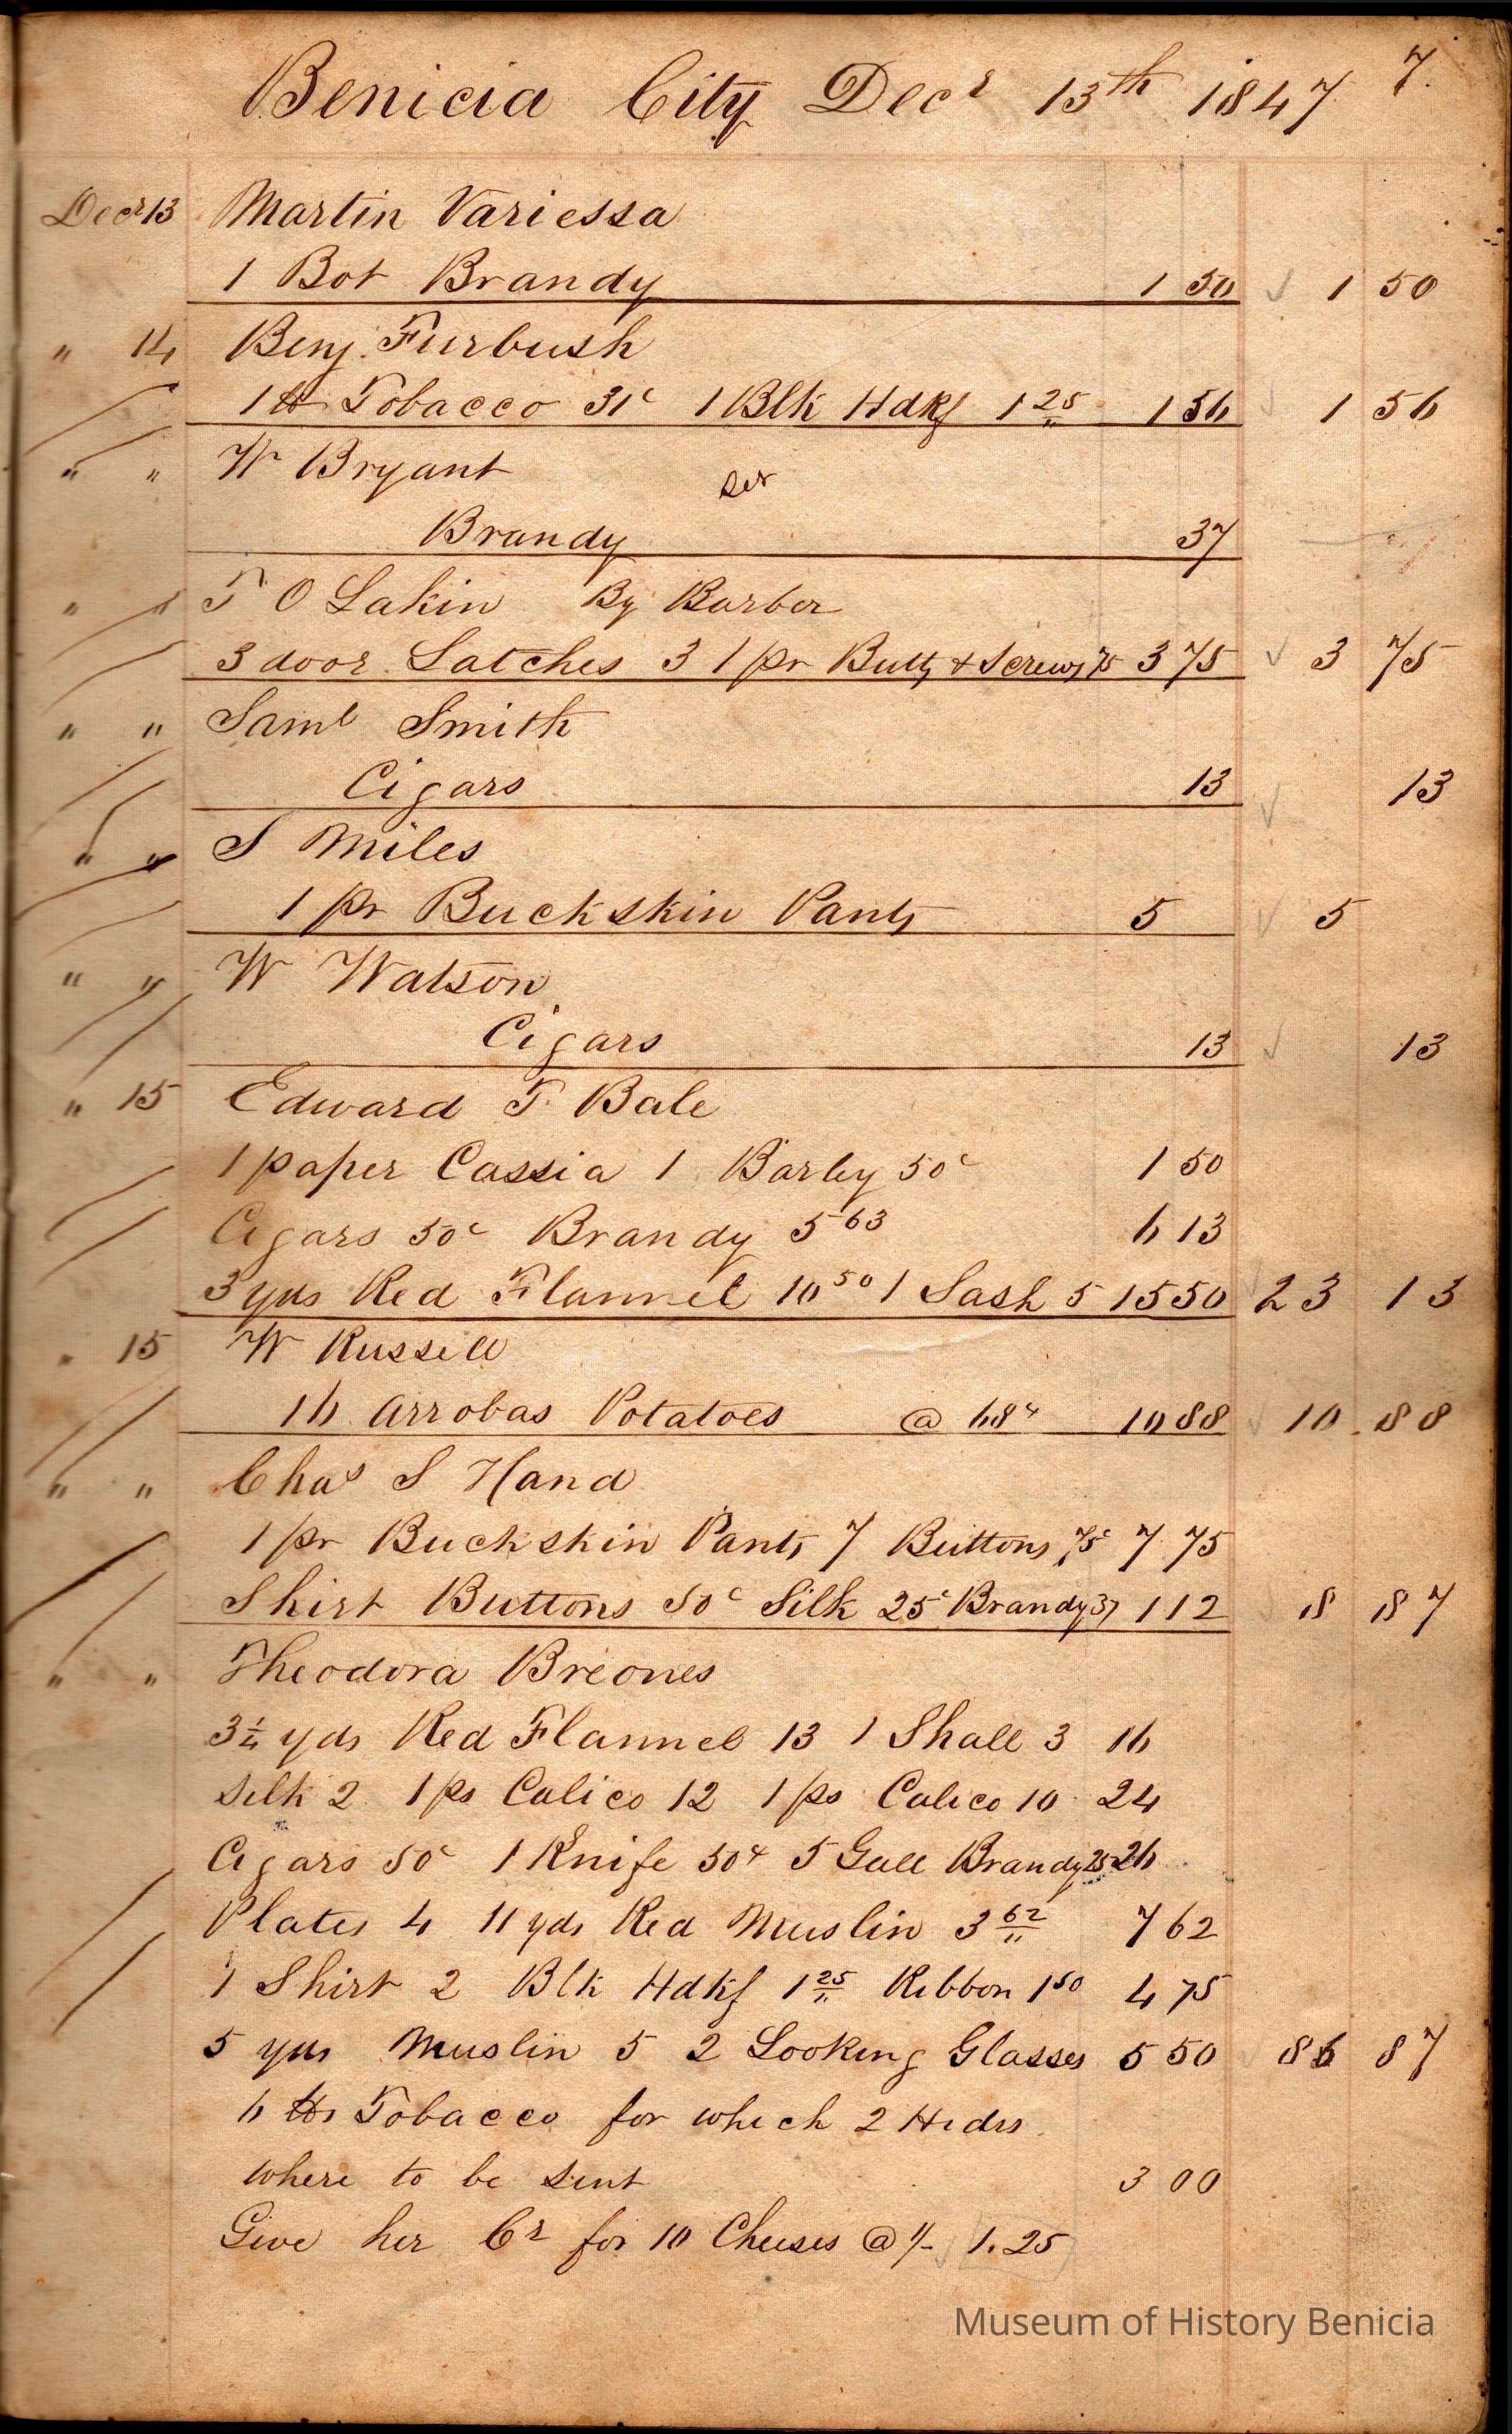 7.
Benicia City Decr 13th 1847
Decr 13 Martin Variessa
1 Bot Brandy 1 50 ✓ 1 50
" 14 Benj. Furbush
1 lb Tobacco 31c 1 Blk Hdkf 1 25 1 56 ✓ 1 56
" " W Bryant
Brandy 37
" " T O Lakin By Barber
3 door Latches 3 1 pr Butts & Screws 75 3 75 ✓ 3 75
" " Saml Smith
Cigars 13 ✓ 13
" " S Miles
1 pr Buckskin Pants 5 ✓ 5
" " W Watson
Cigars 13 ✓ 13
" 15 Edward T. Bale
1 paper Cassia 1 Barley 50c 1 50
Cigars 50c Brandy 5 63 6 13
3 yds Red Flannel 10 50 1 Sash 5 15 50 23 13
" 15 W Russell
16 Arrobas Potatoes @ 68c 10 88 ✓ 10 88
" " Chas S Hand
1 pr Buckskin Pants 7 Buttons 75c 7 75
Shirt Buttons 50c Silk 25c Brandy 37 1 12 ✓ 8 87
" " Theodora Breones
3 1/4 yds Red Flannel 13 1 Shall 3 16
Silk 2 1 ps Calico 12 1 ps Calico 10 24
Cigars 50c 1 Knife 50c 5 Gall Brandy 25 26
Plates 4 11 yds Red Muslin 3 62 7 62
1 Shirt 2 Blk Hdkf 1 25 Ribbon 1 50 4 75
5 yds Muslin 5 2 Looking Glasses 5 50 ✓ 86 87
6 lbs Tobacco for which 2 Hides
where to be sent 3 00
Give her Cr for 10 Cheeses @ 1/- 1.25
Museum of History Benicia